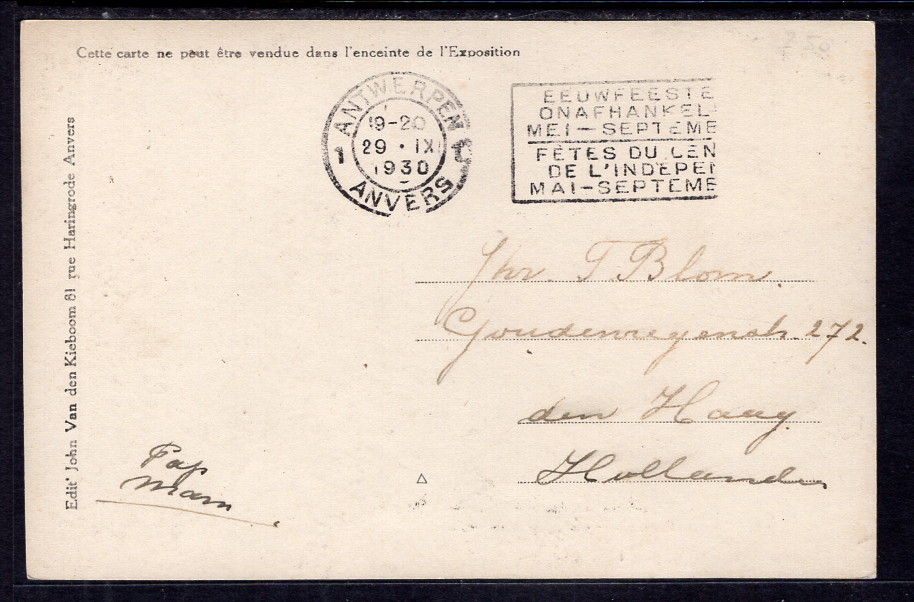 Cette carte ne peut être vendue dans l'enceinte de l'Exposition
ANTWERPEN
1 1
19-20
29 · IX
1930
ANVERS
EEUWFEESTE
ONAFHANKEL
MEI — SEPTEMB
FÊTES DU CEN
DE L'INDEPEN
MAI — SEPTEMB
Jhr. T. Blom
Goudenregenstr. 272.
den Haag
Holland
Pap
Mam
Edit' John Van den Kieboom 81 rue Haringrode Anvers